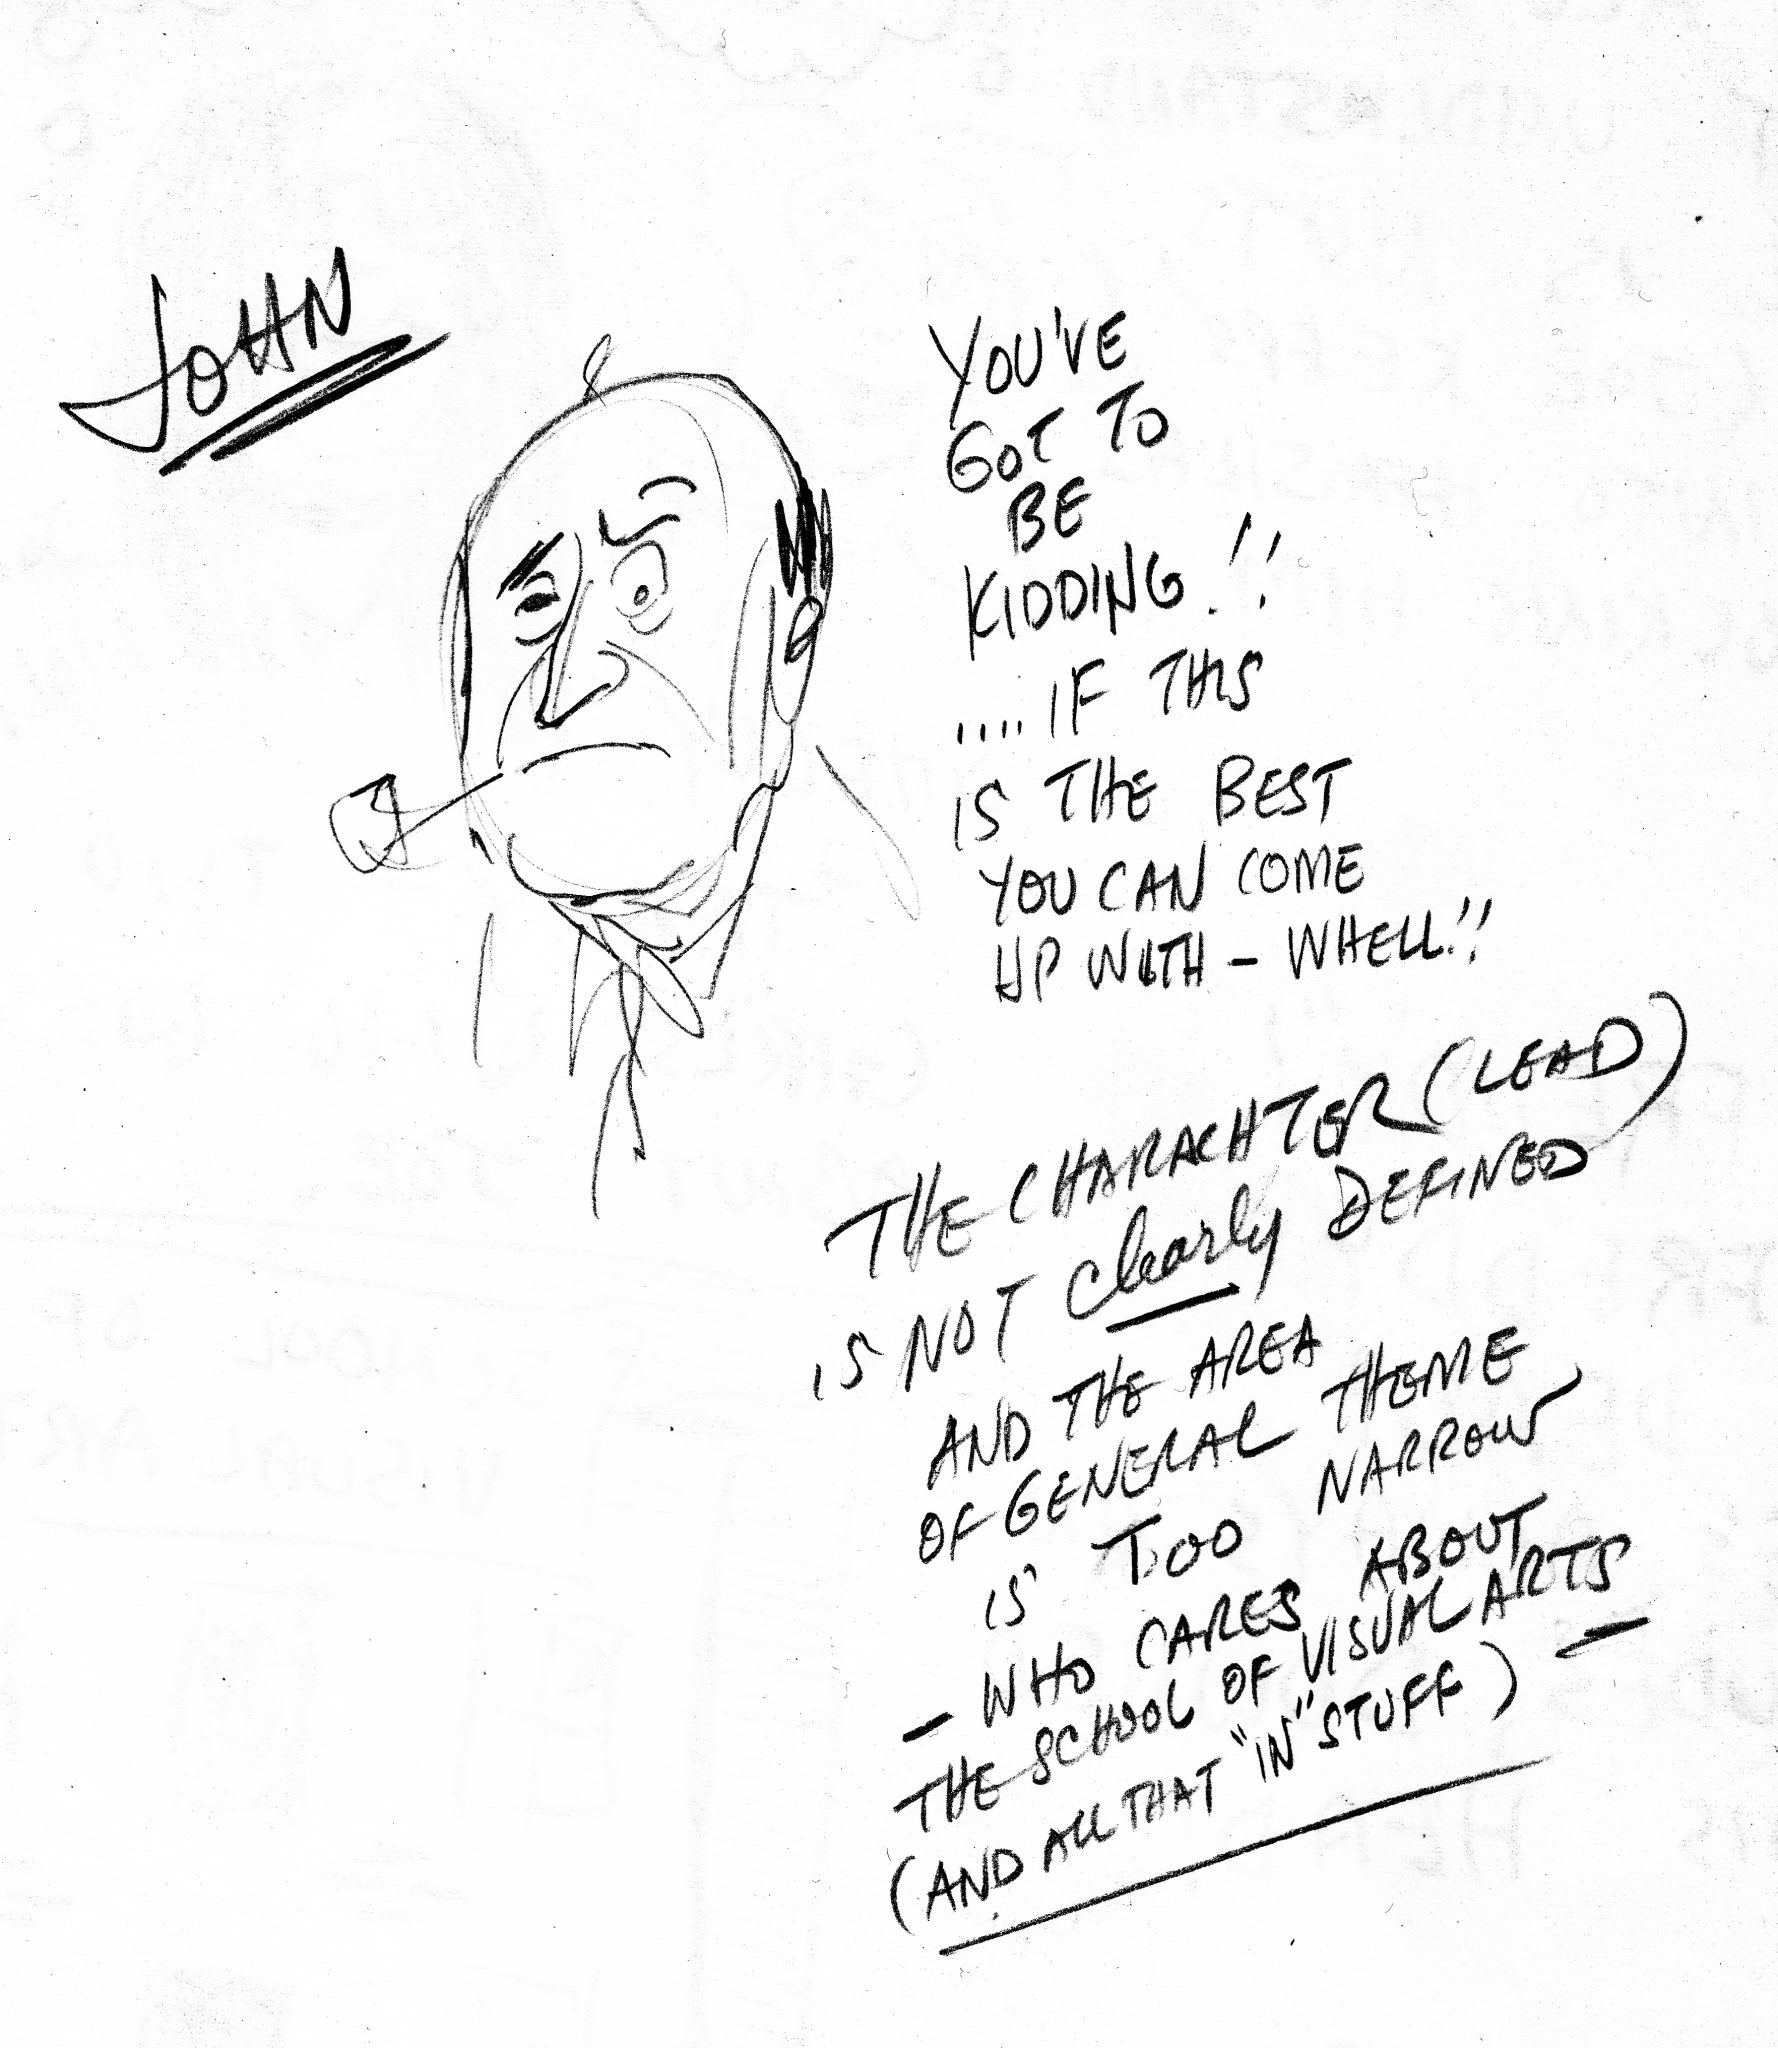 JOHN
YOU'VE
GOT TO
BE
KIDDING!!!
....IF THIS
IS THE BEST
YOU CAN COME
UP WITH - WHELL!!
THE CHARACHTER (LEAD)
IS NOT clearly DEFINED
AND THE AREA
OF GENERAL THEME
IS TOO NARROW
- WHO CARES ABOUT
THE SCHOOL OF VISUAL ARTS -
(AND ALL THAT "IN" STUFF)